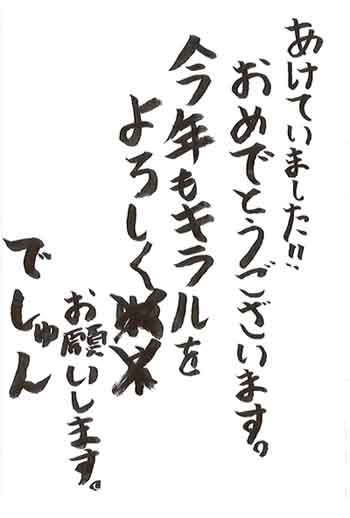 あけていました!!
おめでとうございます。
今年もキラルを
よろしく
お願いします。
でしゅん